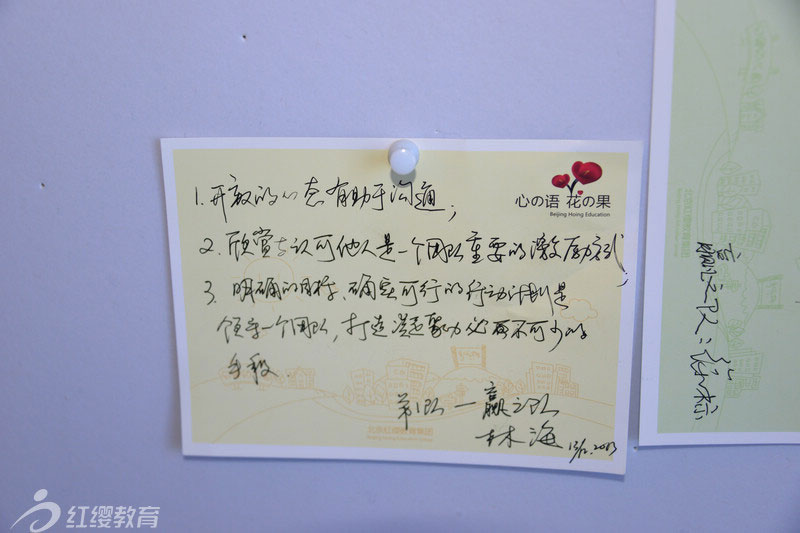 心の语 花の果
Beijing Hoing Education
1. 开放的心态有助于沟通；
2. 欣赏与认可他人是一个团队重要的激励方式；
3. 明确的目标、确实可行的行动计划是
领导一个团队，打造凝聚力必不可少的
手段.
第1队—赢之队
林海 13/12.2013
北京红缨教育集团
Beijing Hoing Education Group
之队：
红缨教育